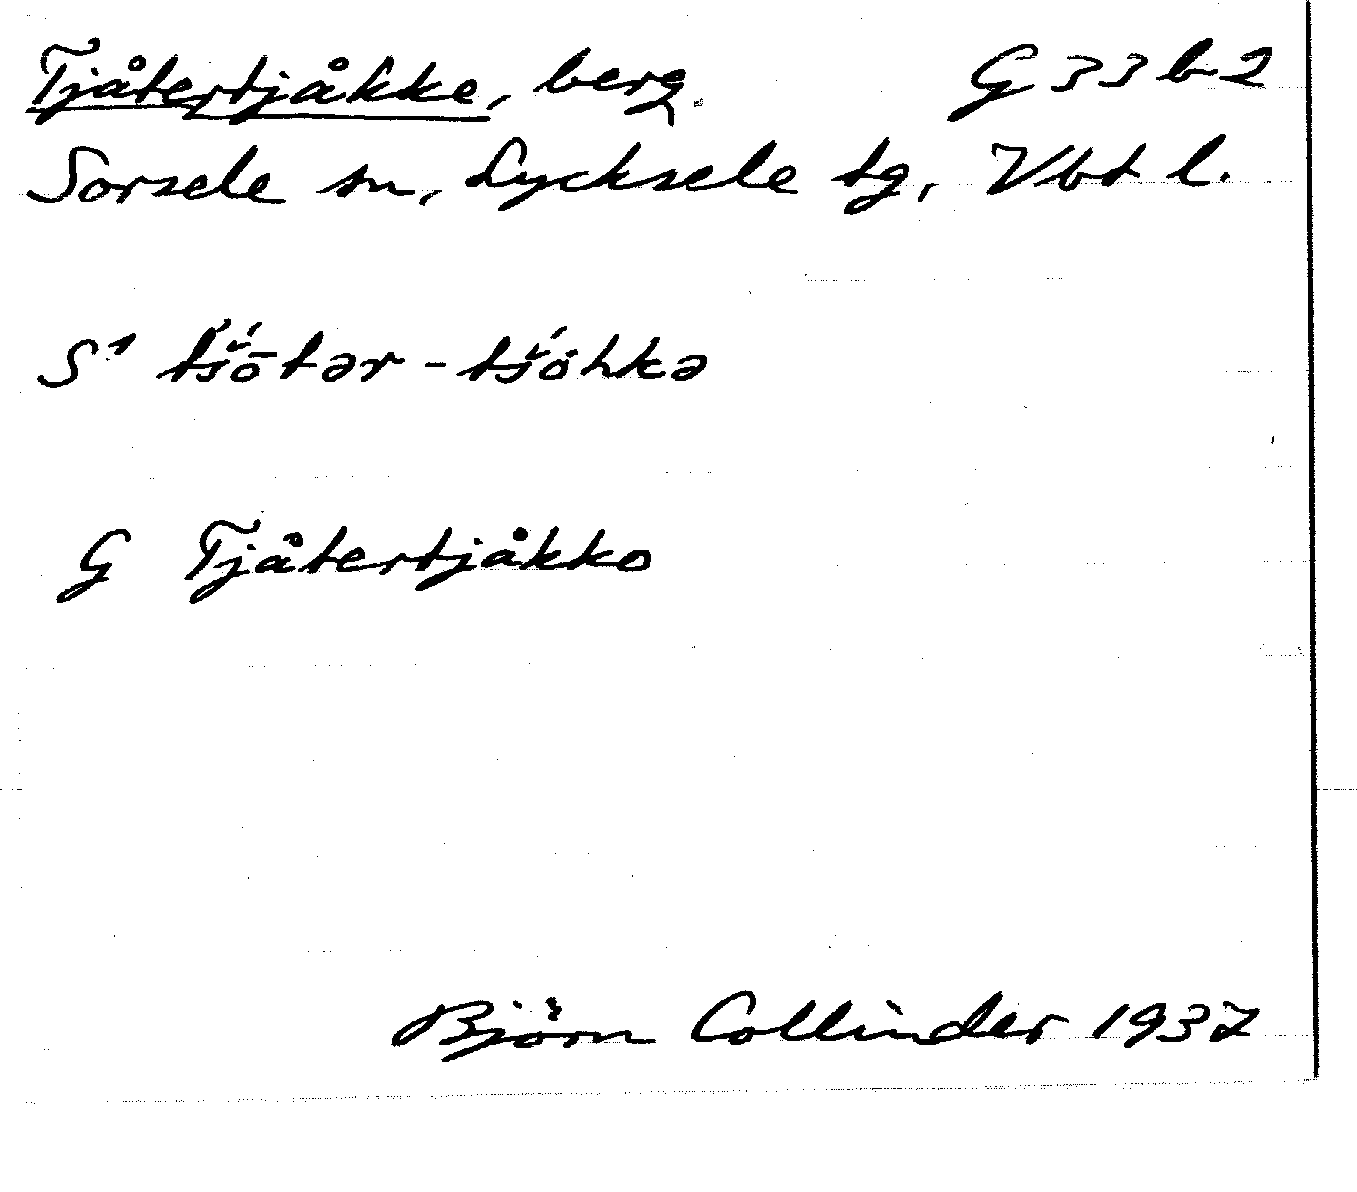 Tjåtertjåkke, berg. G 33 b 2
Sorsele sn, Lycksele tg, Vbt l.
S¹ tšṓ̬tər-tšό̬hkə
G Tjåtertjåkko
Björn Collinder 1937